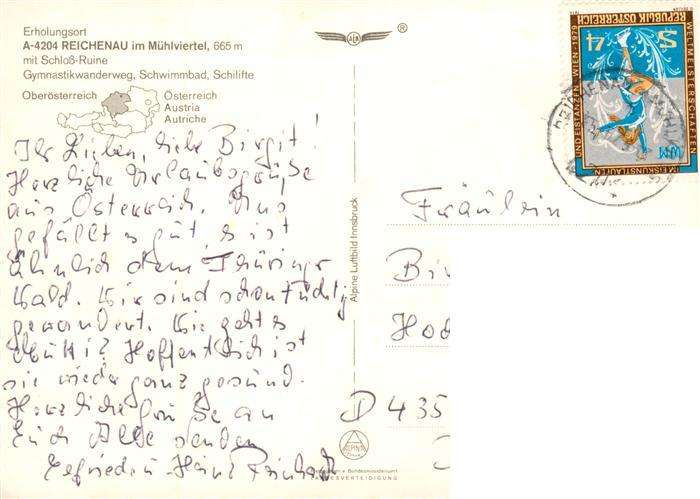 Erholungsort
A-4204 REICHENAU im Mühlviertel, 665 m
mit Schloß-Ruine
Gymnastikwanderweg, Schwimmbad, Schilifte
Oberösterreich
Österreich
Austria
Autriche
Ihr Lieben, liebe Birgit!
Herzliche Urlaubsgrüße
aus Österreich. Uns
gefällt es gut, es ist
ähnlich dem Thüringer
Wald. Wir sind schon tüchtig
gewandert. Wie geht es
Mutti? Hoffentlich ist
sie wieder ganz gesund.
Herzliche Grüße an
Euch Alle senden
Heinz
Alpine Luftbild Innsbruck
AEN
®
S 4
REPUBLIK ÖSTERREICH
WELTMEISTERSCHAFTEN
IM EISKUNSTLAUFEN
UND EISTANZEN · WIEN · 1979
WM
Fräulein
Bi
Ho
D 435
ALPINE
LANDESVERTEIDIGUNG